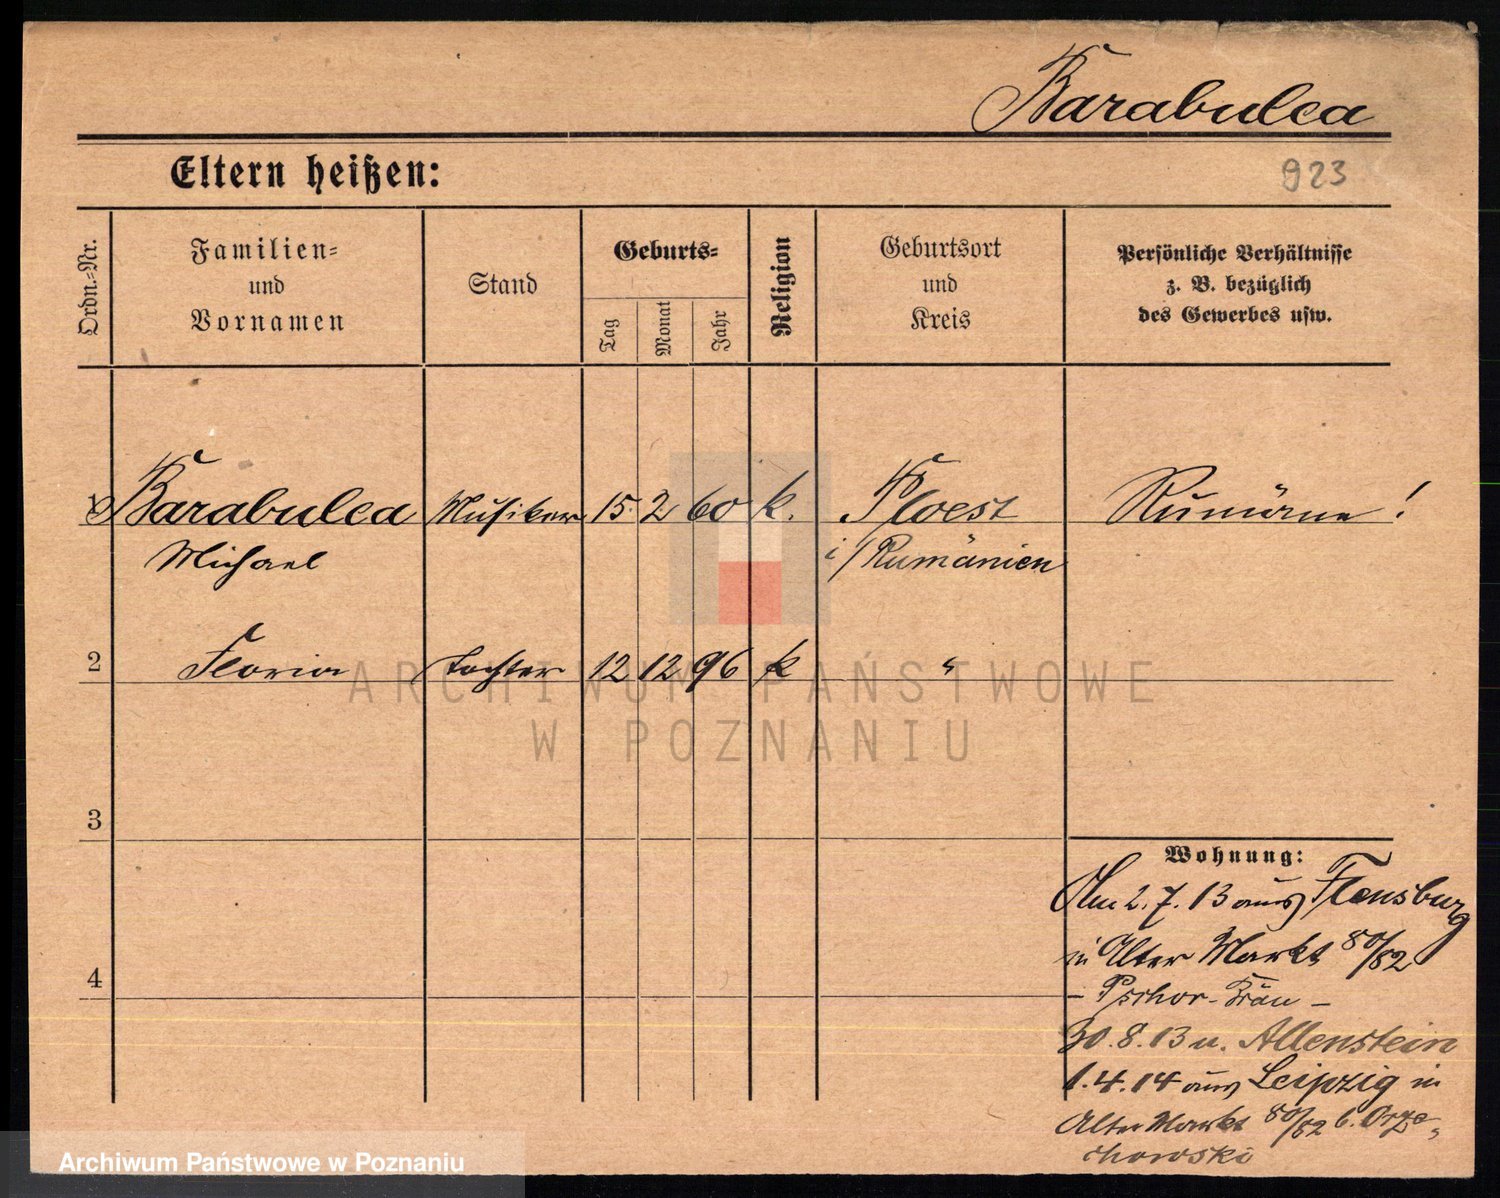 Barabulea
Eltern heißen:
923
Ordn.-Nr.
Familien-
und
Vornamen
Stand
Geburts-
Tag
Monat
Jahr
Religion
Geburtsort
und
Kreis
Persönliche Verhältnisse
z. B. bezüglich
des Gewerbes usw.
1 Barabulea Musiker 15 2 60 k. Ploest Rumäne!
Michael i/Rumänien
2 Floria Tochter 12 12 96 k "
ARCHIWUM PAŃSTWOWE
W POZNANIU
3
Wohnung:
Am 2.7.13 aus Flensburg
in Alter Markt 80/82
4
- Pschor-Bräu -
30.8.13 n. Allenstein
1.4.14 aus Leipzig in
Alter Markt 80/82 b. Orze-
chowski
Archiwum Państwowe w Poznaniu